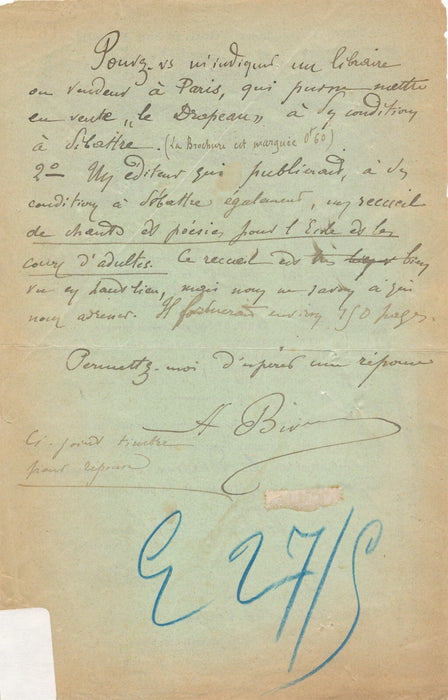 Pouvez-vs m'indiquer un libraire
ou vendeur à Paris, qui puisse mettre
en vente „le Drapeau" à des conditions
à débattre. (La Brochure est marquée 0f60)
2º Un éditeur qui publierait, à des
conditions à débattre également, un recueil
de chants et poésies pour l'Ecole et les
cours d'adultes. Ce recueil est très bien
vu en haut lieu, mais nous ne savons à qui
nous adresser. Il formerait environ 150 pages.
Permettez-moi d'espérer une réponse
A
Ci-joint timbre
pour réponse
E 27/5